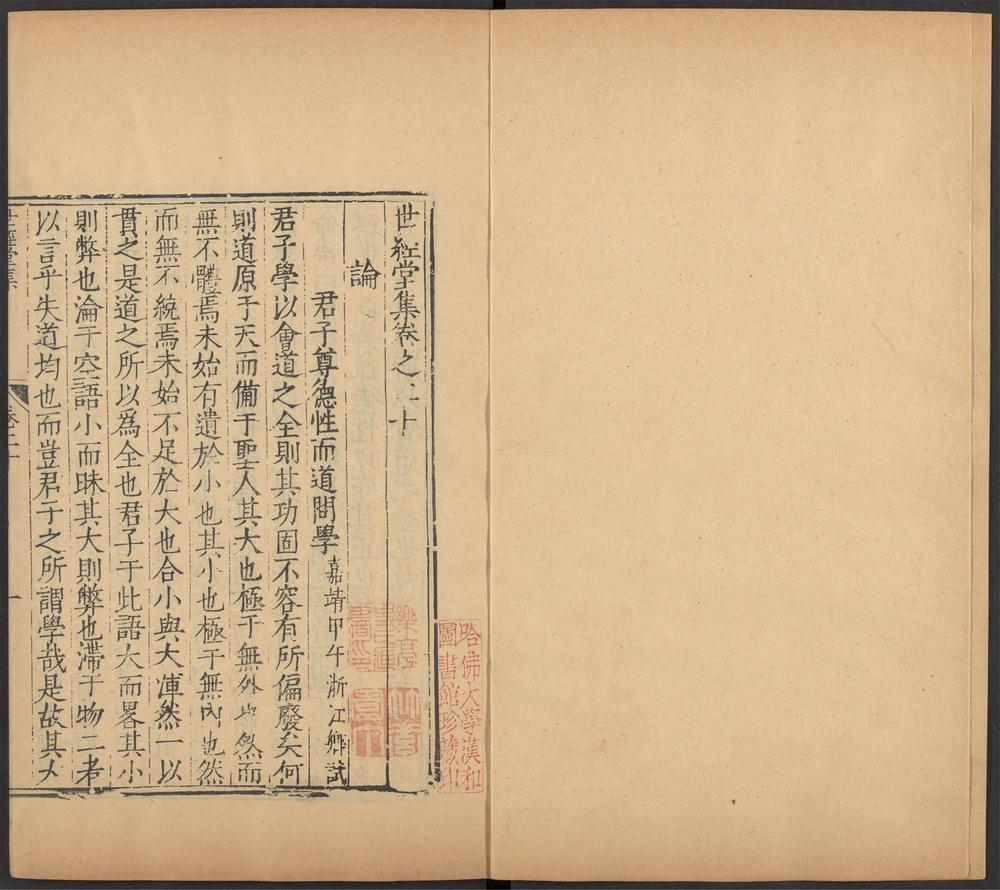 世經堂集卷之二十
論
君子尊德性而道問學 嘉靖甲午浙江鄉試
君子學以會道之全則其功固不容有所偏廢矣何
則道原于天而備于聖人其大也極于無外也然而
無不體焉未始有遺於小也其小也極于無內也然
而無不統焉未始不足於大也合小與大渾然一以
貫之是道之所以爲全也君子于此語大而畧其小
則弊也淪于空語小而昧其大則弊也滯于物二者
以言乎失道均也而豈君子之所謂學哉是故其大
世經堂集 卷二十 一
哈佛大學漢和
圖書館珍藏印